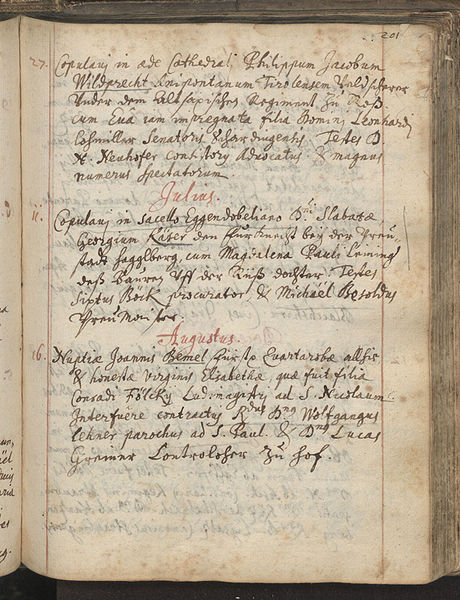 201
27. Copulavi in aede Cathedrali Philippum Jacobum
Wildprecht Enipontanum Tirolensem Veldscherer
Under dem Regiment zu Roß
cum Eva iam impregnata filia Domini Leonhardi
Lohmiller Senatoris Schardingensis. Testes D
N. Neuhofer Consistory Advocatus & magnus
numerus spectatorum.
Julius.
11. Copulavi in Sacello Eggendobeliano
Georgium Kaiser den bei dem Preu-
stadl Hagglberg cum Magdalena Pauli Leining
deß Bauren Uff der Rieß dochter. Testes
Sixtus Böck procurator, & Michäel Besoldus
PreuMaister.
Augustus.
16. Nuptiae Joannis Bemel allhie
& honestae virginis Elisabethae, quae fuit filia
Conradi Fölcky Ludimagistri ad S. Nicolaum.
Interfuere contractus Rdus Dns Wolfgangus
Lehner parochus ad S. Paul. & Dns Lucas
Greiner Controloher Zu hof.